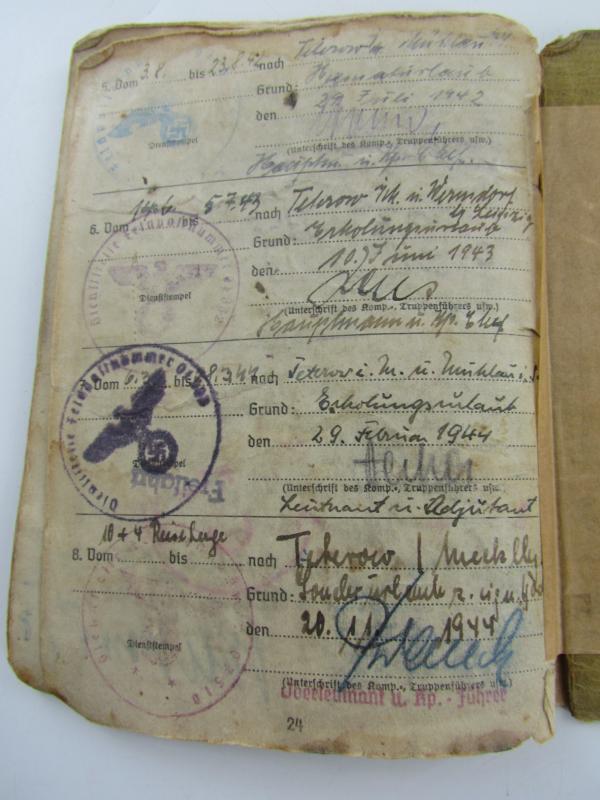 5. Vom 3.8. bis 23.8.42 nach Teterow u. Mühlau
Grund: Heimaturlaub
den 29. Juli 1942
Dienststempel
(Unterschrift des Komp., Truppenführers usw.)
Hauptm. u. Kp. Chef.
6. Vom 14.6. 5.7.43 nach Teterow u. Wermsdorf
Leipzig
Grund: Erholungsurlaub
den 10. Juni 1943
Dienststelle Feldpostnummer
Dienststempel
(Unterschrift des Komp., Truppenführers usw.)
Hauptmann u. Kp. Chef
Vom bis 28.3.44 nach Teterow i. M. u. Mühlau i. S.
Grund: Erholungsurlaub
den 29. Februar 1944
Dienststelle Feldpostnummer
Dienststempel
Freifahrt
(Unterschrift des Komp., Truppenführers usw.
Leutnant u. Adjutant
10 + 4 Reisetage
8. Vom bis nach Teterow / Meckllbg
Grund: Sonderurlaub
den 20. 11. 1944
Dienststempel
(Unterschrift des Komp., Truppenführers usw.)
Oberleutnant u. Kp. - Führer
24